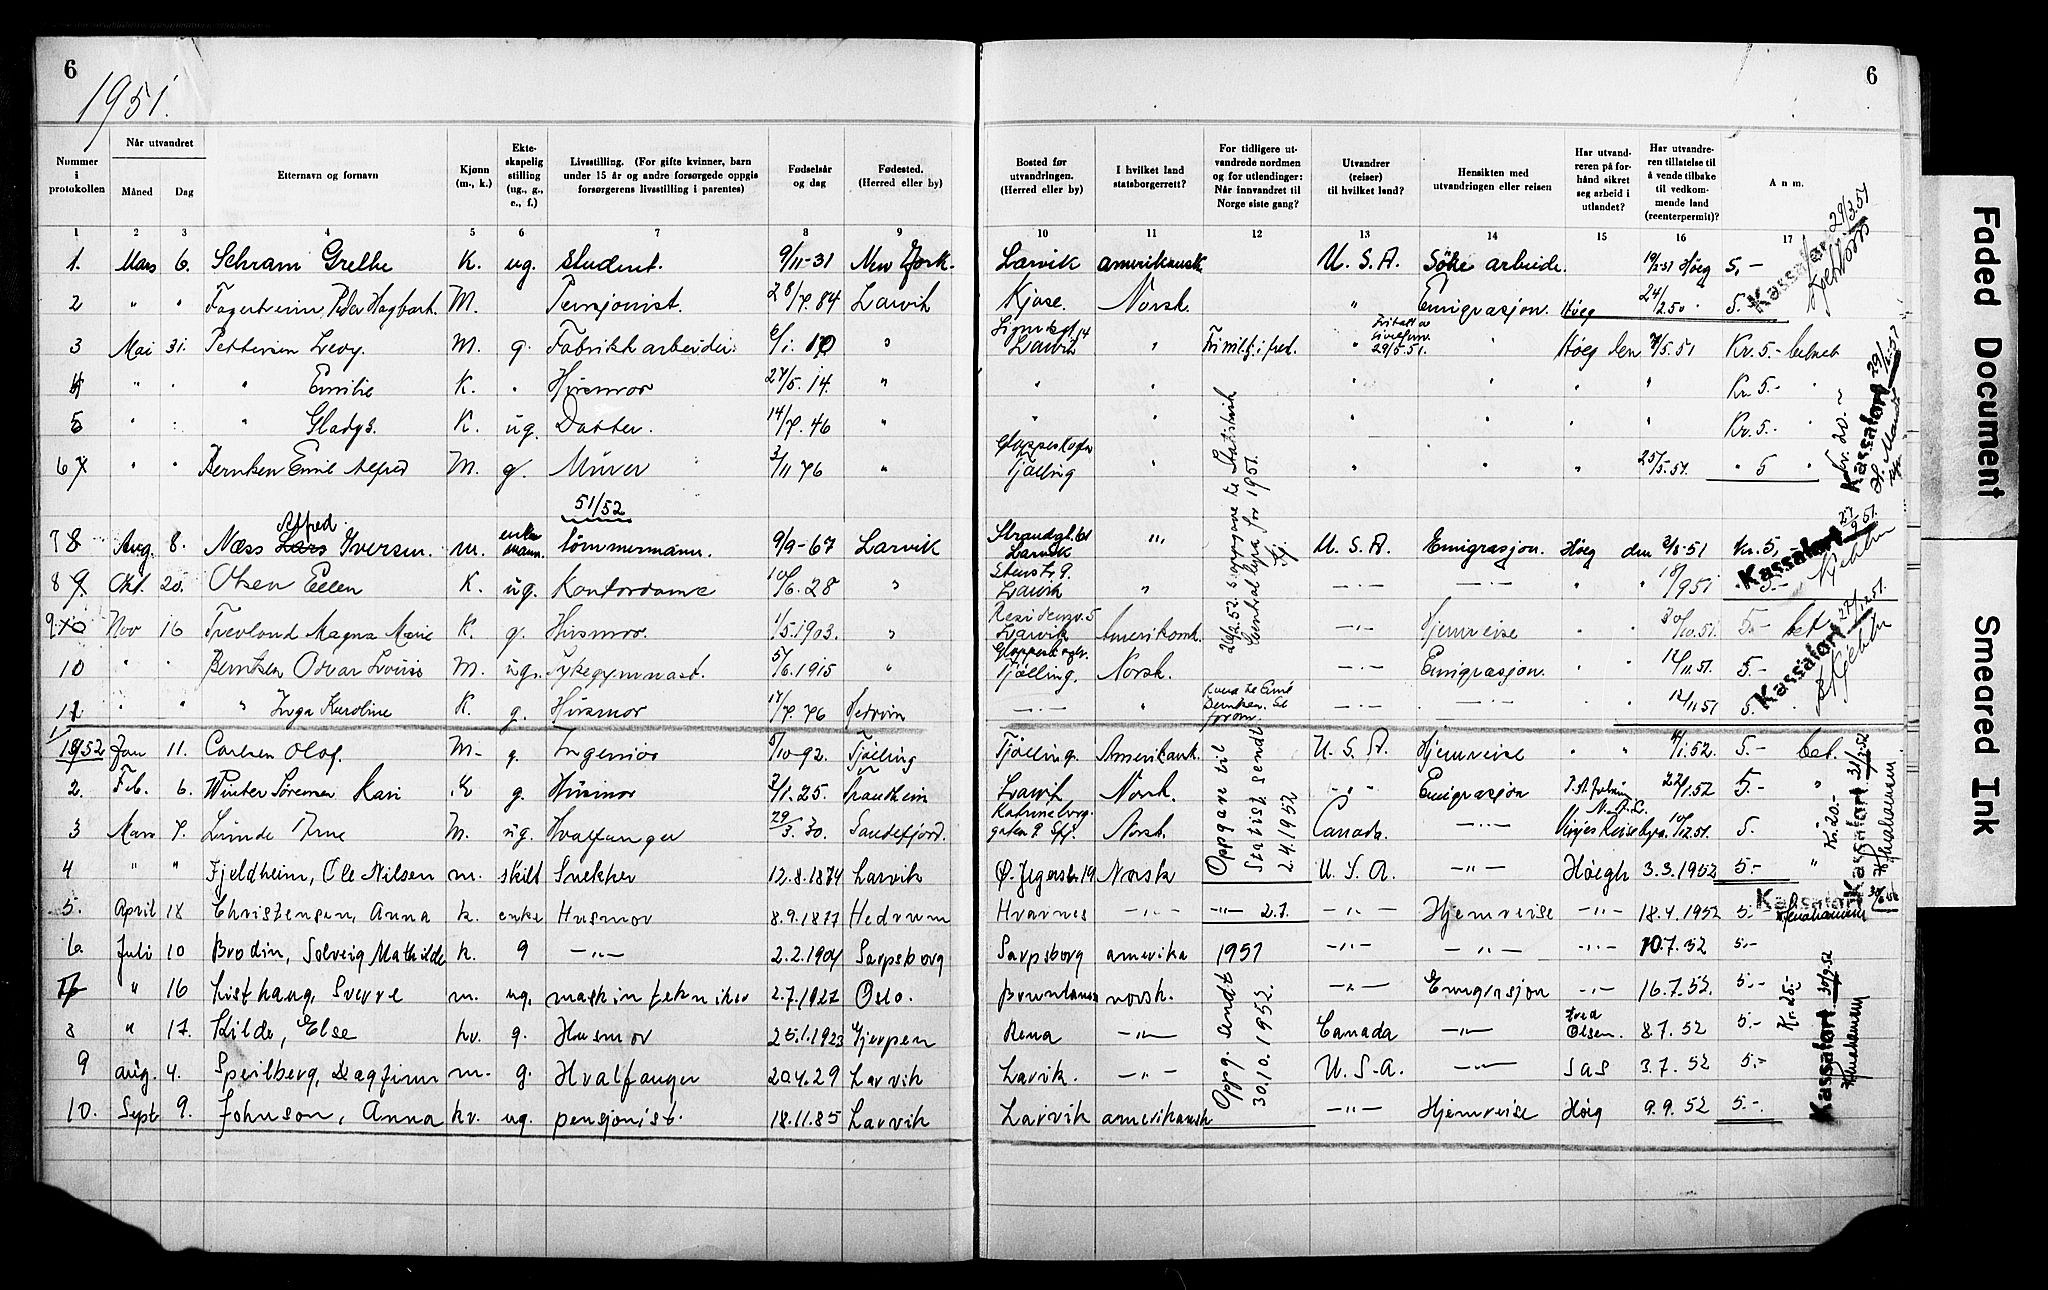 6
1951.
6
Nummer i protokollen
Når utvandret
Måned
Dag
Etternavn og fornavn
Kjønn (m., k.)
Ekte-skapelig stilling (ug., g., e., f.)
Livsstilling. (For gifte kvinner, barn under 15 år og andre forsørgede oppgis forsørgerens livsstilling i parentes)
Fødselsår og dag
Fødested. (Herred eller by)
Bosted før utvandringen. (Herred eller by)
I hvilket land statsborgerrett?
For tidligere ut-vandrede nordmen og for utlendinger: Når innvandret til Norge siste gang?
Utvandrer (reiser) til hvilket land?
Hensikten med utvandringen eller reisen
Har utvand-reren på for-hånd sikret seg arbeid i utlandet?
Har utvandre-ren tillatelse til å vende tilbake til vedkom-mende land (reenterpermit)?
Anm.
1 2 3 4 5 6 7 8 9 10 11 12 13 14 15 16 17
1. Mars 6. Schram Grethe K. ug. student. 9/11-31 New York. Larvik amerikansk U.S.A. Søke arbeide. Høeg 5,-
2 " " Fagerheim, Peder Hagbart M. Pensjonist. 28/7.84 Larvik Kjose. Norsk. " Emigrasjon. Høeg 24/2.50 5.-
3 Mai 31. Pettersen Levy. M. g. Fabrikkarbeider. 6/1.10 " Larvik " " 29/5.51. Høeg den 5.51 Kr. 5.-
4 " " " Emilie K. " Husmor 27/5.14. " " " " " " " Kr. 5.-
5 " " " Gladys. K. ug. Datter. 14/7.46 " " " " " " " Kr. 5.-
6 " " Berntsen Emil Alfred M. g. Murer 3/11 76 " Tjølling " " " " 25/5.51. " 5 "
51/52
7 Aug. 8. Næss Alfred Iversen. m. enkemann. tømmermann. 9/9-67 Larvik Larvik " U.S.A. Emigrasjon. Høeg den 3/8-51 Kr. 5,
8 Okt. 20. Olsen Ellen K. ug. Kontordame 10/6.28 " Larvik " -"- -"- " " 5.-
9 Nov 16 Magna Marie K. g. Husmor. 1/5.1903. " Larvik Amerikansk -"- Hjemreise " " 30/10.51. 5.- bet
10 " " Berntsen Oscar Louis M. ug. Sykegymnast. 5/6.1915 " Tjølling. Norsk. -"- Emigrasjon. " " 12/11.51. 5.-
11 " " " Inga Karoline K. g. Husmor 17/7.76 Hedrum -"- " -"- -"- " " 12/11 51 5.
26/2.52. oppgave til Statistisk Sentralbyrå for 1951.
1952 Jan 11. Carlsen Olof. M. g. Ingeniør 5/10-92. Tjølling Tjølling. Amerikansk. U.S.A. Hjemreise " " 4/1.52. 5.- bet.
2. Feb. 6. Winter Sørensen Kari K g. Husmor 3/1.25. Trondheim Larvik Norsk. " Emigrasjon 22/1.52 5.- "
3 Mars 7. Lunde Arne M. ug. Hvalfanger 29/3.30. Sandefjord. Norsk. Canada. -"- 10/12.51. 5.
4 " " Fjeldheim, Ole Nilsen m. skilt Snekker 12.8.1874 Larvik Ø. Jegersb. 19 Norsk U.S.A. -"- Høegh 3.3.1952 5.- "
5. April 18 Christensen, Anna k. enke Husmor 8.9.1877 Hedrum Hvarnes -"- -"- 2.7. Hjemreise -"- 18.4.1952 5.-
6. Juli 10 Brodin, Solveig Mathilde k. g -"- 2.2.1904 Sarpsborg Sarpsborg amerika 1951 -"- -"- -"- 10.7.52 5.-
7 " 16 Listhaug, Sverre m. ug. maskintekniker 2.7.1927 Oslo. Brunlanes norsk. -"- Emigrasjon -"- 16.7.52. 5.-
8 " 17. Kilde, Else kv. g. Husmor 25.1.1923 Gjerpen Rena -"- Canada -"- Fred Olsen. 8.7.52 5.-
9 aug. 4. Speilberg, Dagfinn m. g. Hvalfanger 20.4.29 Larvik Larvik. -"- U.S.A. -"- SAS 3.7.52 5.-
10. Sept 9. Johnson, Anna kv. ug. pensjonist. 18.11.85 Larvik Larvik amerikansk -"- Hjemreise Høeg 9.9.52 5.-
Oppgave til Statist. sendt 2.4.1952
Oppg. sendt 30.10.1952.
Kassaført 29/3.51
Kassaført 29/6-51
Kr. 20.-
Kassaført
Kassaført
Kassaført 31/3.52
Kr. 20.-
Kassaført 30/6 52
Kassaført 30/9.52
Kr. 25.-
Faded Document
Smeared Ink